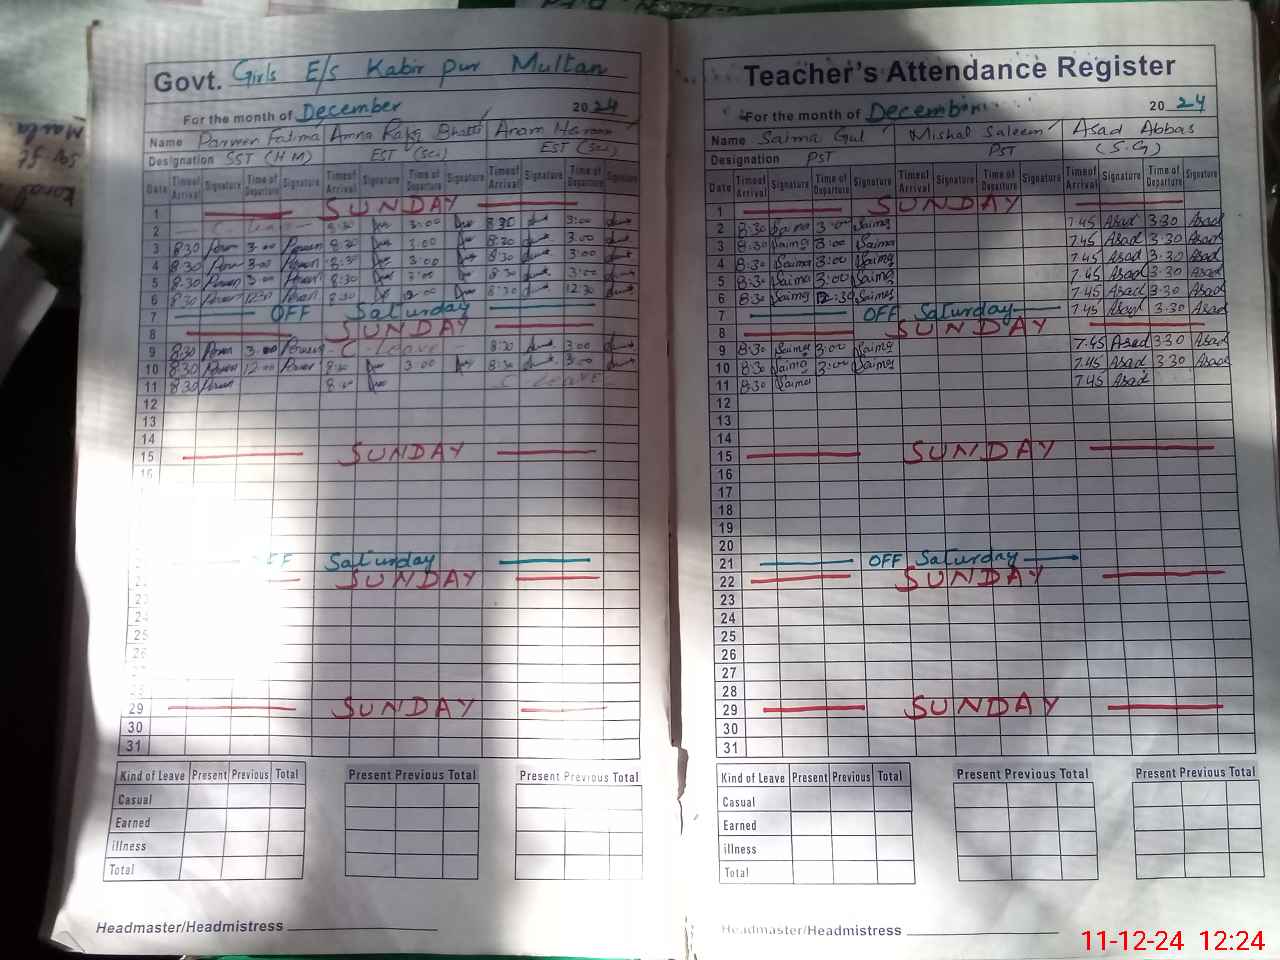 Govt. Girls E/s Kabir pur Multan
For the month of December 2024
Name Parveen Fatima Amna Rafiq Bhatti Anam Haroon
Designation SST (H M) EST (Sci) EST (Sci)
Date Time of Arrival Signature Time of Departure Signature Time of Arrival Signature Time of Departure Signature Time of Arrival Signature Time of Departure Signature
1 SUNDAY
2 C leave 8:30 3:00 8:30 3:00
3 8:30 3:00 8:30 3:00 8:30 3:00
4 8:30 3:00 8:30 3:00 8:30 3:00
5 8:30 3:00 8:30 3:00 8:30 3:00
6 8:30 12:30 8:30 8:30 12:30
7 OFF Saturday
8 SUNDAY
9 8:30 3:00 C leave 8:30 3:00
10 8:30 12:00 8:30 3:00 8:30 3:00
11 8:30 8:30 C leave
12
13
14
15 SUNDAY
16
OFF Saturday
SUNDAY
23
24
25
26
28
29 SUNDAY
30
31
Kind of Leave Present Previous Total Present Previous Total Present Previous Total
Casual
Earned
illness
Total
Headmaster/Headmistress
Teacher's Attendance Register
For the month of December 2024
Name Saima Gul Mishal Saleem Asad Abbas
Designation PST PST (S.G)
Date Time of Arrival Signature Time of Departure Signature Time of Arrival Signature Time of Departure Signature Time of Arrival Signature Time of Departure Signature
1 SUNDAY
2 8:30 Saima 3:00 Saima 7.45 Asad 3.30 Asad
3 8:30 Saima 3:00 Saima 7.45 Asad 3.30 Asad
4 8:30 Saima 3:00 Saima 7.45 Asad 3.30 Asad
5 8:30 Saima 3:00 Saima 7.45 Asad 3.30 Asad
6 8:30 Saima 12:30 Saima 7.45 Asad 3.30 Asad
7 OFF Saturday 7.45 Asad 3.30 Asad
8 SUNDAY
9 8:30 Saima 3:00 Saima 7.45 Asad 3.30 Asad
10 8:30 Saima 3:00 Saima 7.45 Asad 3.30 Asad
11 8:30 Saima 7.45 Asad
12
13
14
15 SUNDAY
16
17
18
19
20
21 OFF Saturday
22 SUNDAY
23
24
25
26
27
28
29 SUNDAY
30
31
Kind of Leave Present Previous Total Present Previous Total Present Previous Total
Casual
Earned
illness
Total
Headmaster/Headmistress
11-12-24 12:24